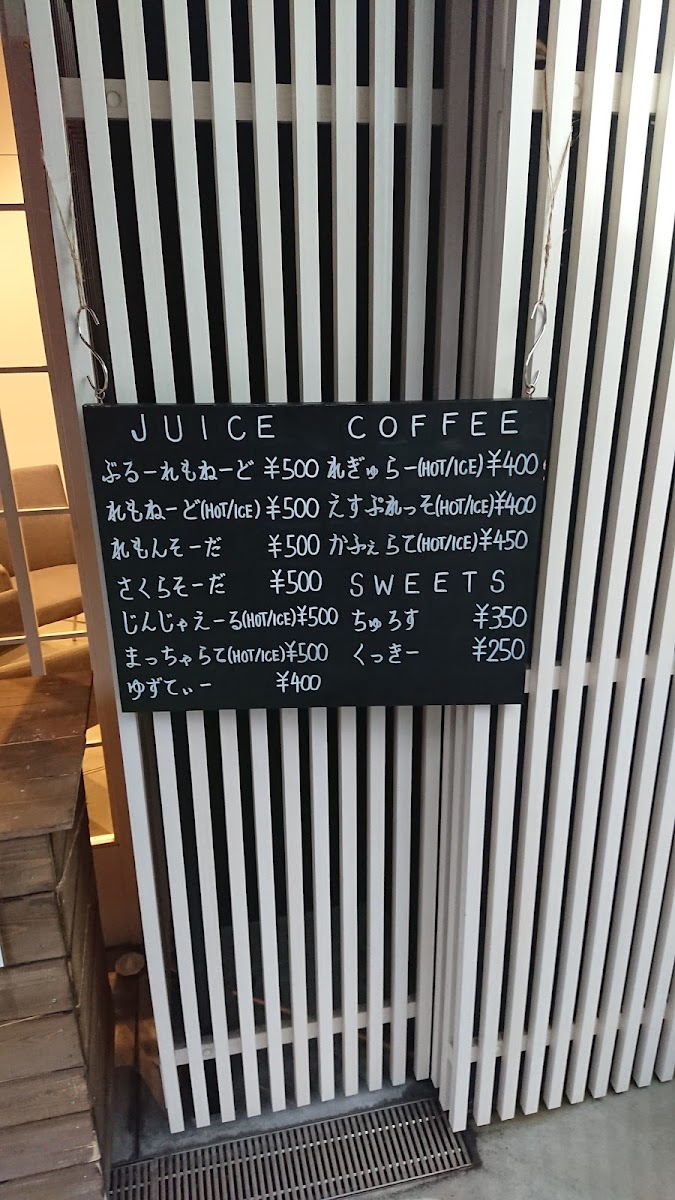 JUICE
ぶるーれもねーど ¥500
れもねーど(HOT/ICE) ¥500
れもんそーだ ¥500
さくらそーだ ¥500
じんじゃえーる(HOT/ICE) ¥500
まっちゃらて(HOT/ICE) ¥500
ゆずてぃー ¥400
COFFEE
れぎゅらー(HOT/ICE) ¥400
えすぷれっそ(HOT/ICE) ¥400
かふぇらて(HOT/ICE) ¥450
SWEETS
ちゅろす ¥350
くっきー ¥250